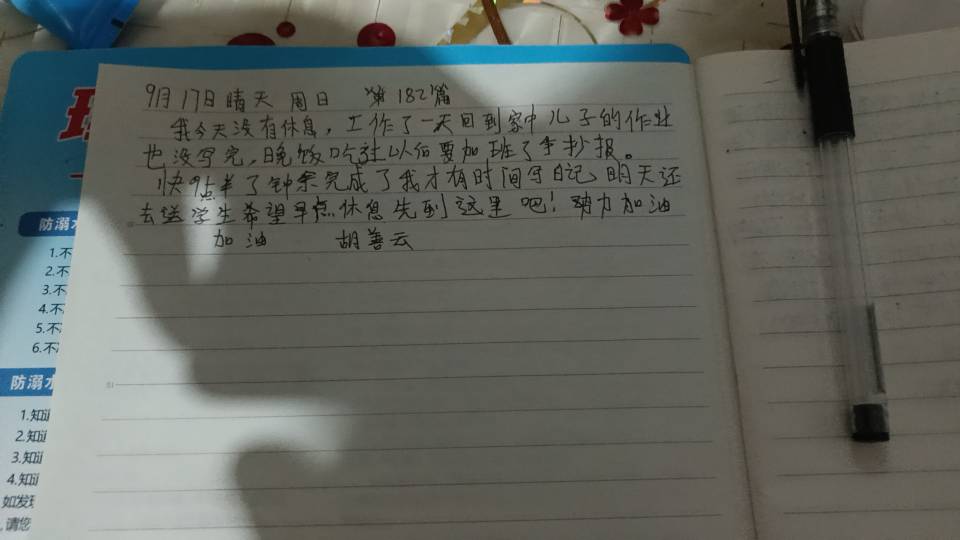 9月17日 晴天 周日 第182篇
我今天没有休息，工作了一天回到家中儿子的作业
也没写完，晚饭吃过以后要加班了手抄报。
快9点半了钟余完成了我才有时间写日记 明天还
去送学生希望早点休息先到这里吧！努力加油
加油 胡善云
防溺水
1.不
2.不
3.不
4.不
5.不
6.不
防溺水
1.知
2.知
3.知
4.知
如发现
,请您